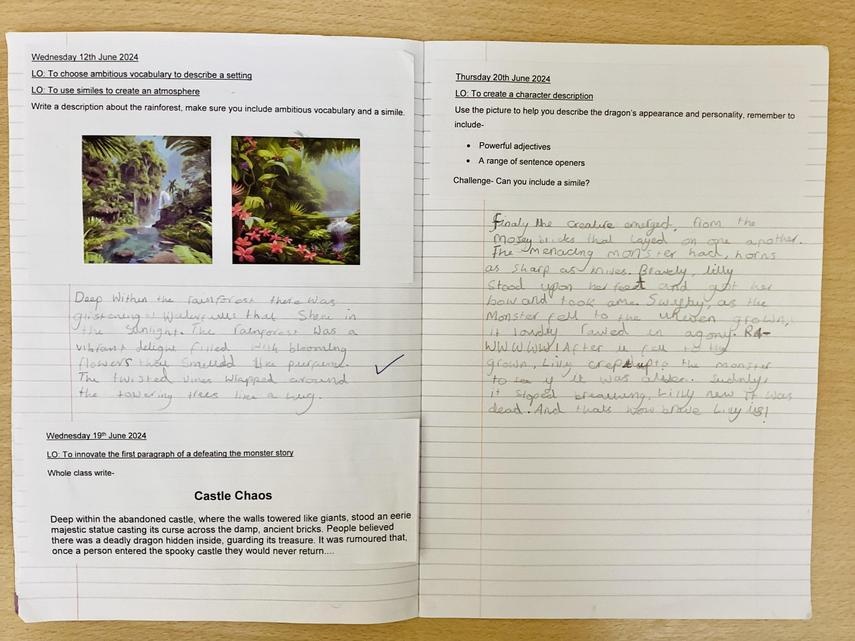 Wednesday 12th June 2024
LO: To choose ambitious vocabulary to describe a setting
LO: To use similes to create an atmosphere
Write a description about the rainforest, make sure you include ambitious vocabulary and a simile.
Deep within the rainforest there was
glistening waterfalls that Shein in
the Sunlight. The rainforest was a
vibrant delight filled with blooming
flowers that Smelld like purpume.
The twisted vines wrapped around
the towering trees like a hug.
Wednesday 19th June 2024
LO: To innovate the first paragraph of a defeating the monster story
Whole class write-
Castle Chaos
Deep within the abandoned castle, where the walls towered like giants, stood an eerie
majestic statue casting its curse across the damp, ancient bricks. People believed
there was a deadly dragon hidden inside, guarding its treasure. It was rumoured that,
once a person entered the spooky castle they would never return....
Thursday 20th June 2024
LO: To create a character description
Use the picture to help you describe the dragon's appearance and personality, remember to
include-
• Powerful adjectives
• A range of sentence openers
Challenge- Can you include a simile?
Finaly the creature emerged, from the
mosey bricks that layed on one another.
The menacing monster had, horns
as sharp as knives. Bravely, lilly
Stood upon her feet and got her
bow and took ame. Swiftly, as the
Monster fell to the uneven grown,
it loudly rawed in agony. RA-
WWWWW! After it fell to the
grown, Lilly crept up to the monster
to see if it was alive. Sudnly,
it stoped breathing, Lilly new it was
dead. And thats how brave Lilly is!